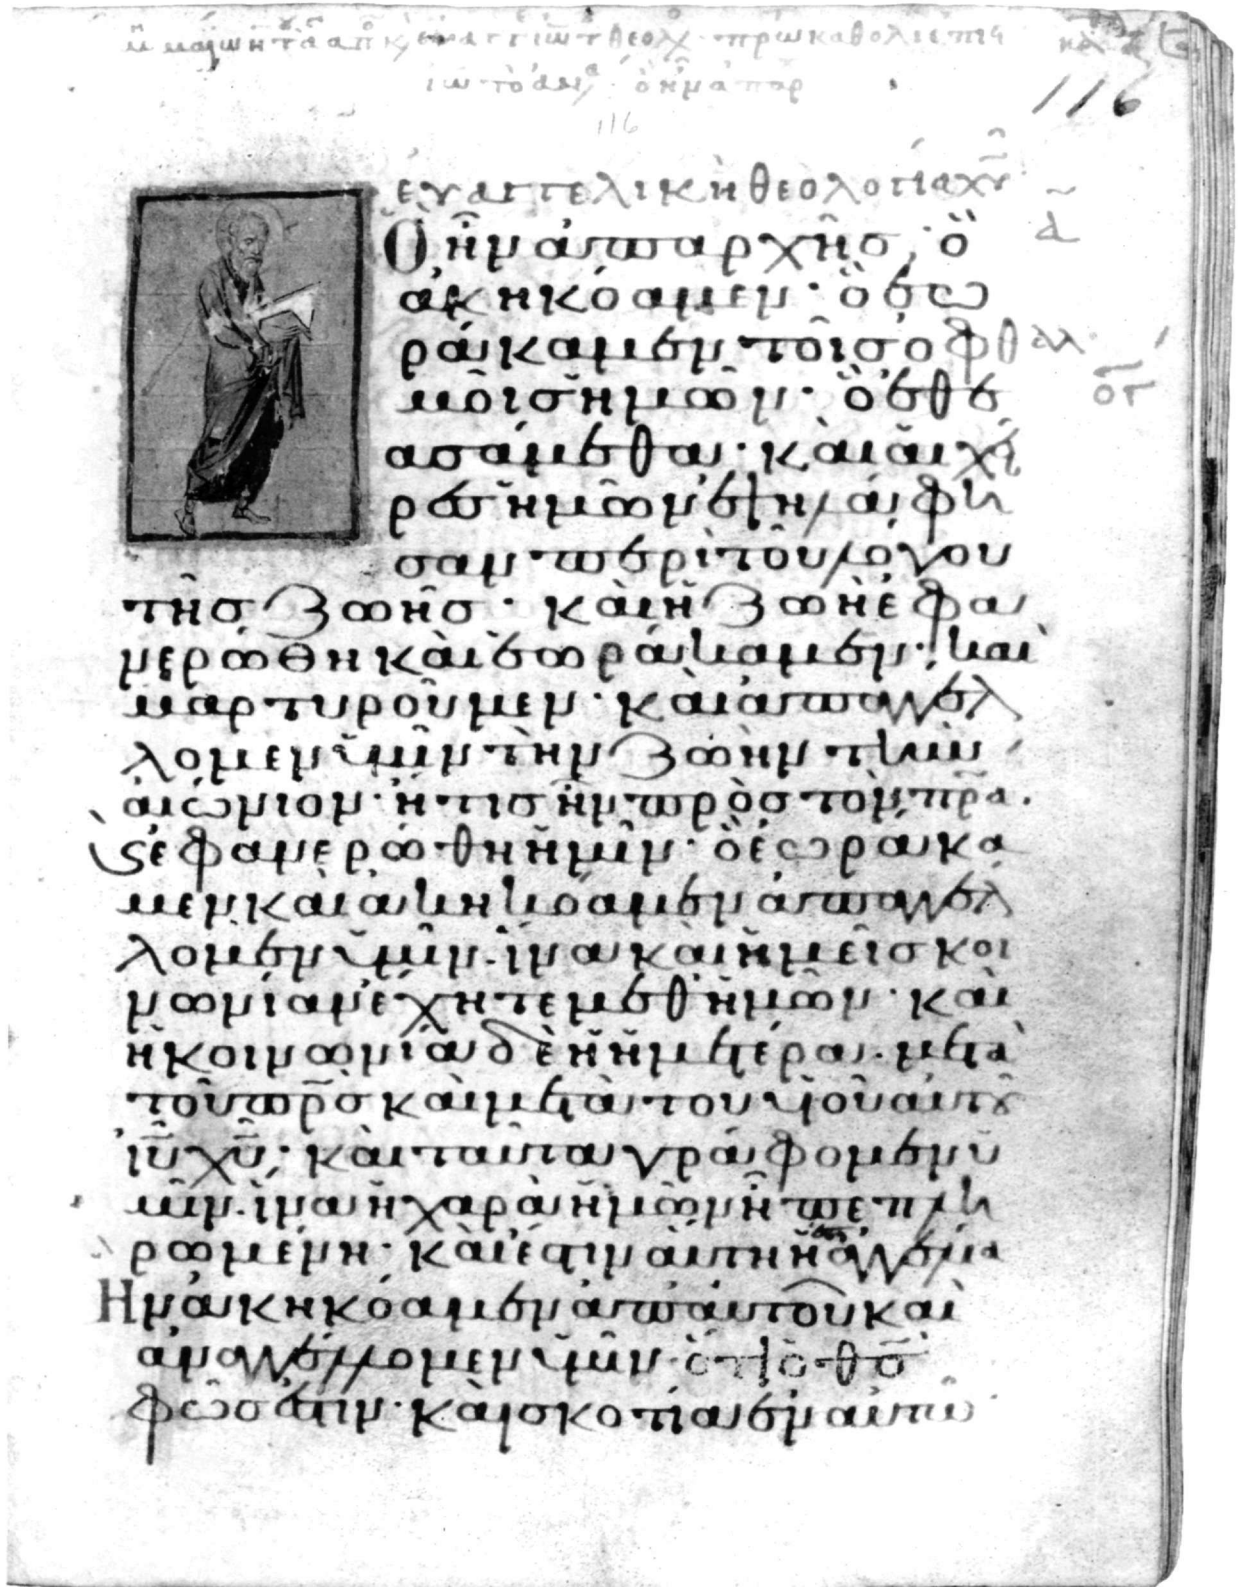 116
116
εὐαγγελικὴ θεολογία χυ
Ὃ ἦν ἀπαρχῆσ· ὃ
ἀκηκόαμεν· ὃ ἑω
ράκαμεν τοῖσ ὀφθαλ
μοῖσ ἡμῶν· ὃ ἐθε
ασάμεθα· καὶ αἱ χεῖ
ρεσ ἡμῶν ἐψηλάφη
σαν περὶ τοῦ λόγου
τῆσ ζωῆσ· καὶ ἡ ζωὴ ἐφα
νερώθη καὶ ἑωράκαμεν· καὶ
μαρτυροῦμεν· καὶ ἀπαγγέλ
λομεν ὑμῖν τὴν ζωὴν τὴν
αἰώνιον· ἥτισ ἦν πρὸσ τὸν πρα·
ϛ ἐφανερώθη ἡμῖν· ὃ ἑωράκα
μεν καὶ ἀκηκόαμεν ἀπαγγέλ
λομεν ὑμῖν· ἵνα καὶ ἡμεῖσ κοι
νωνίαν ἔχητε μεθ ἡμῶν· καὶ
ἡ κοινωνία δὲ ἡ ἡμετέρα· μετὰ
τοῦ πρσ καὶ μετὰ του υἱοῦ αὐτοῦ
ιυ χυ· καὶ ταῦτα γράφομεν ὑ
μῖν· ἵνα ἡ χαρὰ ἡμῶν ἦ πεπλη
ρωμένη· καὶ ἔστιν αὕτη ἡ ἀγγελία
Ἣν ἀκηκόαμεν ἀπ αὐτοῦ καὶ
ἀναγγέλλομεν ὑμῖν· ὅτι ὁ θσ
φῶσ ἐστιν· καὶ σκοτία ἐν αὐτῶ